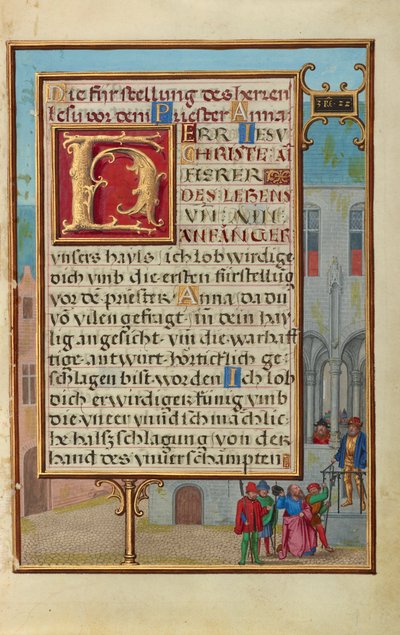 Die furstellung des herren
Iesu vor dem Priester Anna·
HERR IESV
CHRISTE AI
FIERER
DES LEBENS
VN̄ AIN
ANFANGER
vnsers hayls / ich lob wirdige
dich vmb die ersten furstellūg
vor dē priester· Anna da du
vō vilen gefragt / in dein hay
lig angesicht vm die warhaff
tige antwurt hörticklich ge-
schlagen bist worden Ich lob
dich erwirdiger künig vmb
die vneer vnnd schmachlic
he halsschlagung / von der
hand des vnuerschampten